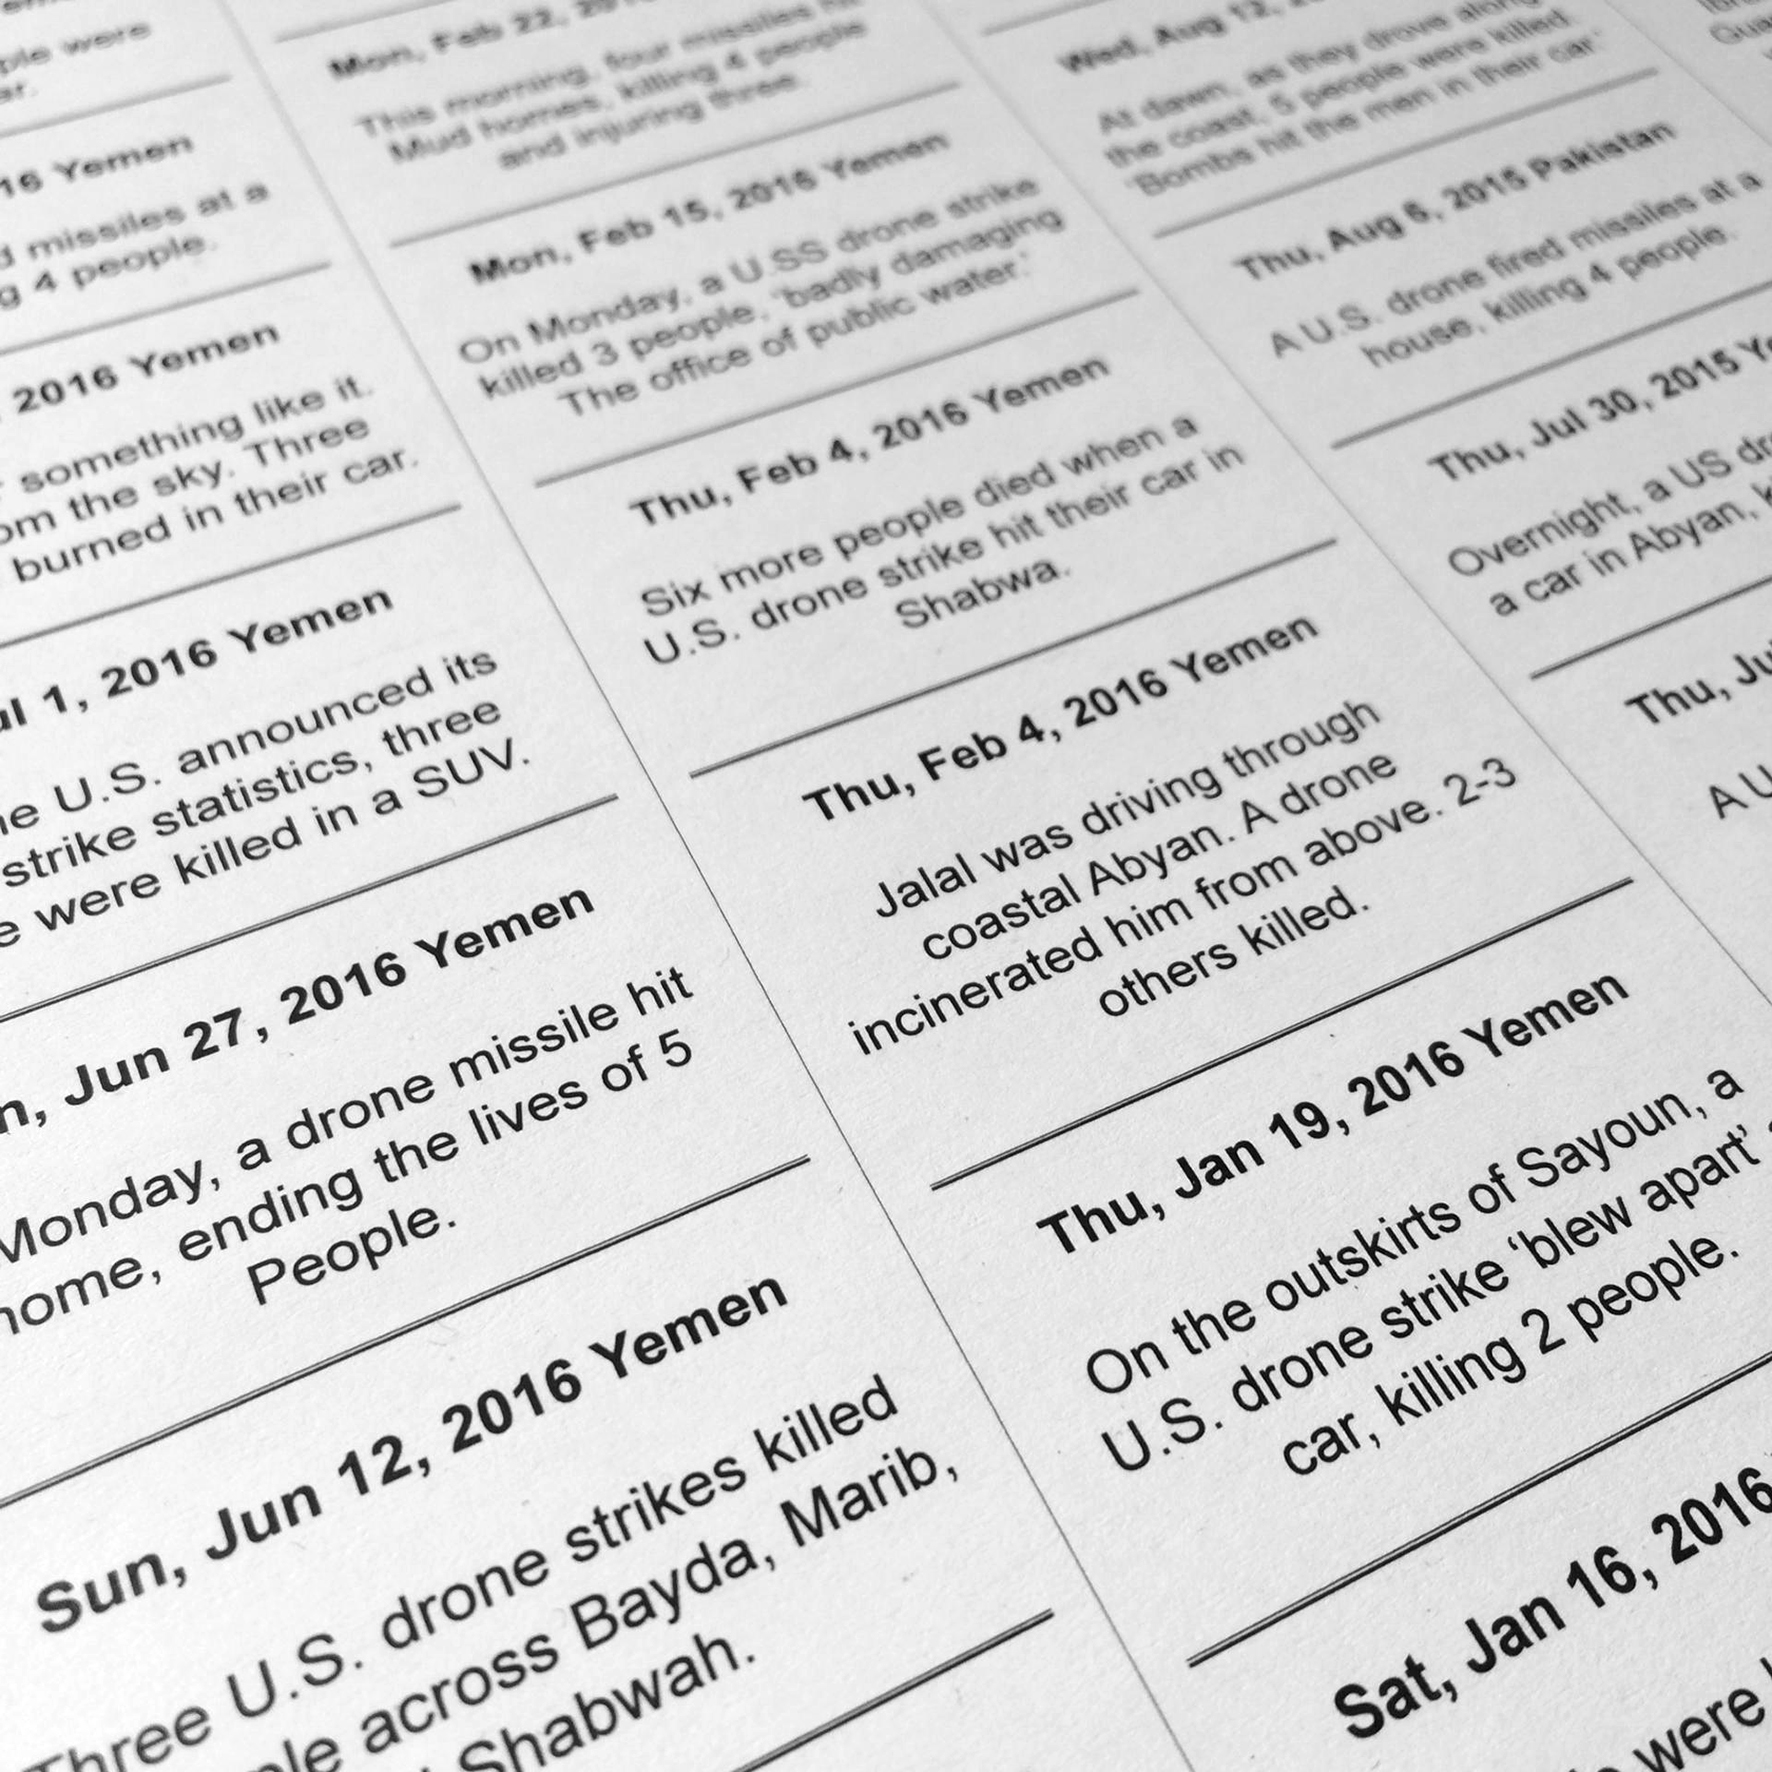 ple were
ar.
16 Yemen
missiles at a
g 4 people.
2016 Yemen
something like it.
om the sky. Three
burned in their car.
ul 1, 2016 Yemen
he U.S. announced its
strike statistics, three
e were killed in a SUV.
n, Jun 27, 2016 Yemen
Monday, a drone missile hit
home, ending the lives of 5
People.
Sun, Jun 12, 2016 Yemen
Three U.S. drone strikes killed
ple across Bayda, Marib,
Shabwah.
Mon, Feb 22,
This morning, four missiles hit
Mud homes, killing 4 people
and injuring three.
Mon, Feb 15, 2016 Yemen
On Monday, a U.SS drone strike
killed 3 people, 'badly damaging
The office of public water.'
Thu, Feb 4, 2016 Yemen
Six more people died when a
U.S. drone strike hit their car in
Shabwa.
Thu, Feb 4, 2016 Yemen
Jalal was driving through
coastal Abyan. A drone
incinerated him from above. 2-3
others killed.
Thu, Jan 19, 2016 Yemen
On the outskirts of Sayoun, a
U.S. drone strike ‘blew apart’
car, killing 2 people.
Sat, Jan 16, 2016
were
Wed, Aug 12,
At dawn, as they drove along
the coast, 5 people were killed.
'Bombs hit the men in their car'
Thu, Aug 6, 2015 Pakistan
A U.S. drone fired missiles at a
house, killing 4 people.
Thu, Jul 30, 2015 Ye
Overnight, a US dr
a car in Abyan, k
Thu, Ju
A U